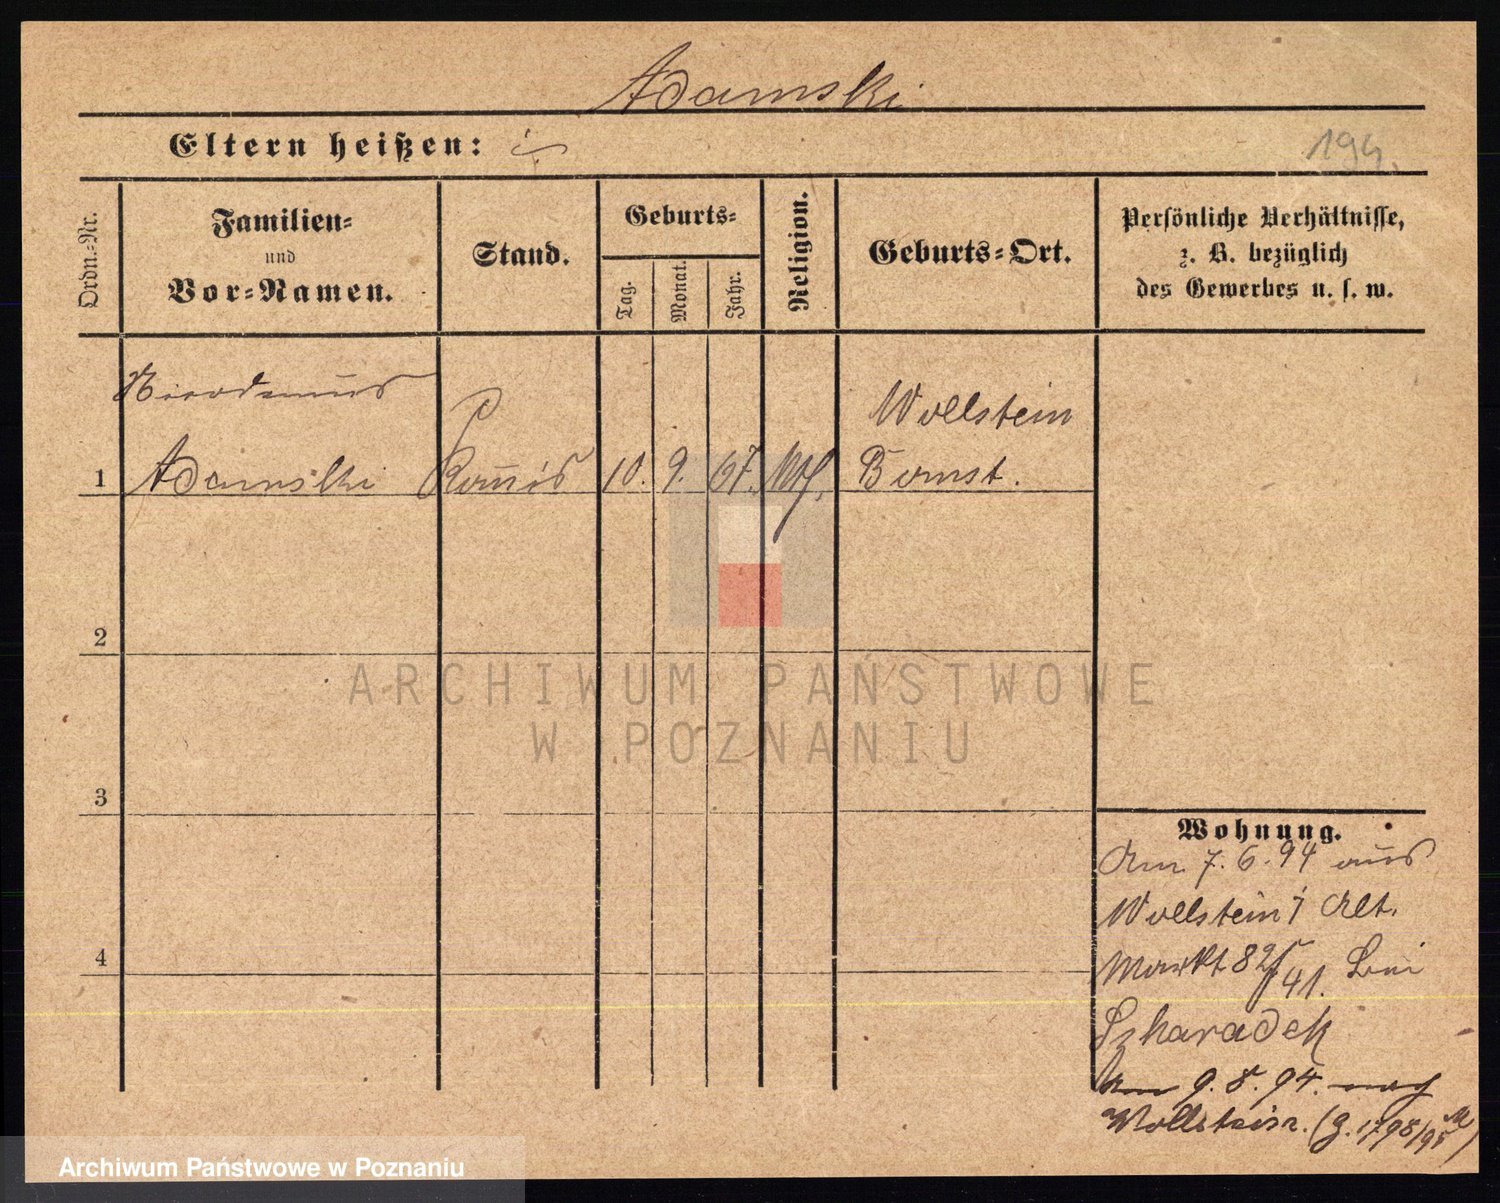 Adamski
Eltern heißen:
194.
Ordn.-Nr.
Familien-
und
Vor-Namen.
Stand.
Geburts-
Tag.
Monat.
Jahr.
Religion.
Geburts-Ort.
Persönliche Verhältnisse,
z. B. bezüglich
des Gewerbes u. s. w.
Nicodemus
1 Adamski
Komis
10. 9. 67. kth.
Wollstein
Bomst.
2
3
4
Wohnung.
Am 7. 6. 94 aus
Wollstein / Alt.
Markt 82/41. bei
Szkaradek
Am 9. 8. 94. nach
Wollstein. (g. 1798/95 M)
ARCHIWUM PAŃSTWOWE
W POZNANIU
Archiwum Państwowe w Poznaniu